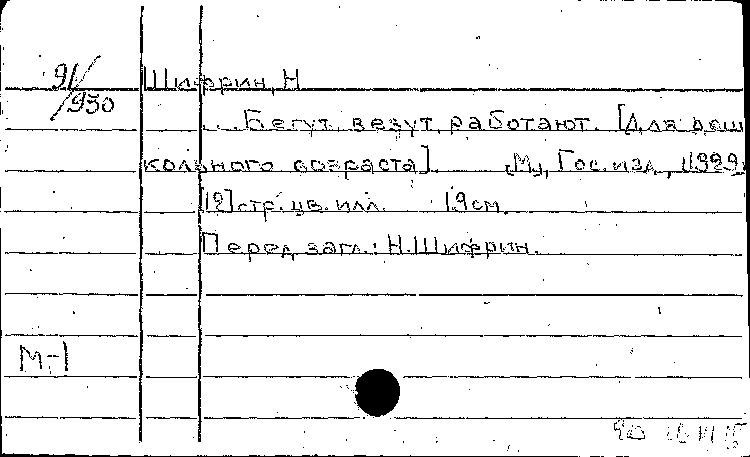 91/930
Шифрин, Н
... Бегут, везут, работают. [Для дош
кольного возраста]. „М„, Гос. изд.,
[12] стр. цв. илл. 19 см.
Перед загл.: Н. Шифрин.
М-1